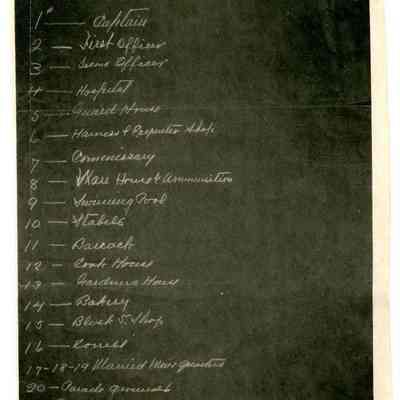 1 — Captain
2 — First Officer
3 — Officer
4 — Hospital
5 — Guard House
6 — Harness & Carpenter Shop
7 — Commissary
8 — Ware House & Ammunition
9 — Swiming Pool
10 — Stabels
11 — Barrack
12 — Cook House
13 — Gardners House
14 — Bakery
15 — Black S. Shop
16 — Correll
17-18-19 Married Mens quarters
20 — Parade grounds